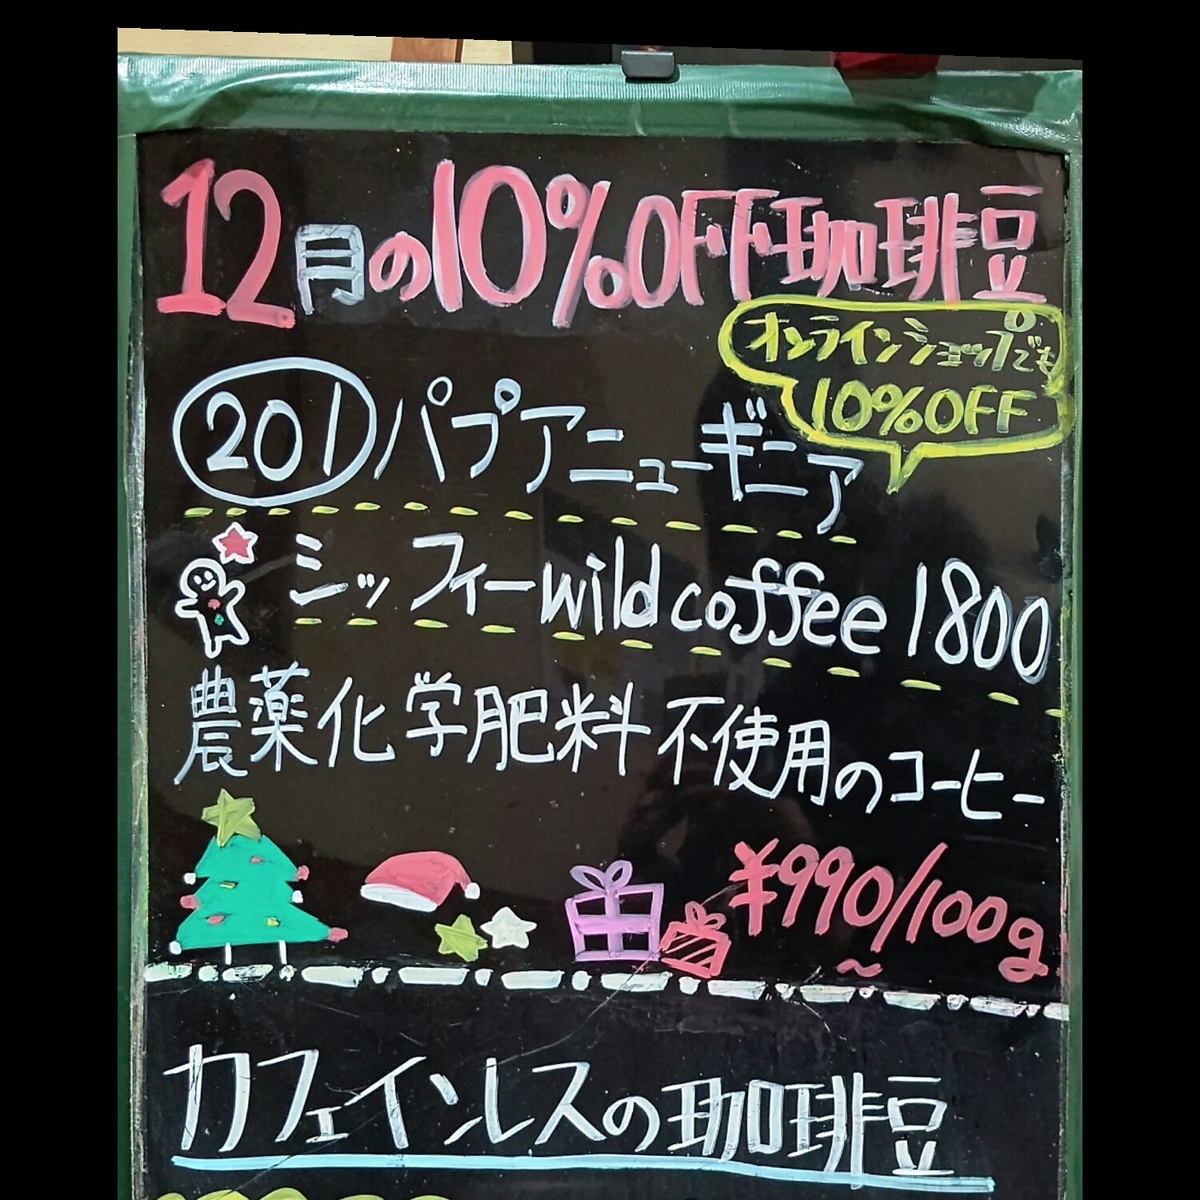 12月の10%OFF珈琲豆
オンラインショップでも
10%OFF
201 パプアニューギニア
シッフィーwild coffee 1800
農薬化学肥料不使用のコーヒー
¥990/100g
~
カフェインレスの珈琲豆